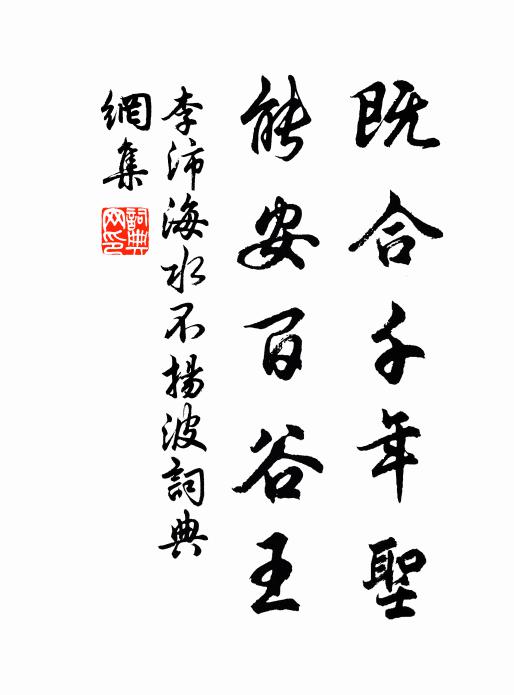 既合千年聖
能安百谷王
李沛海水不揚波詞典
網集
詞典
网印